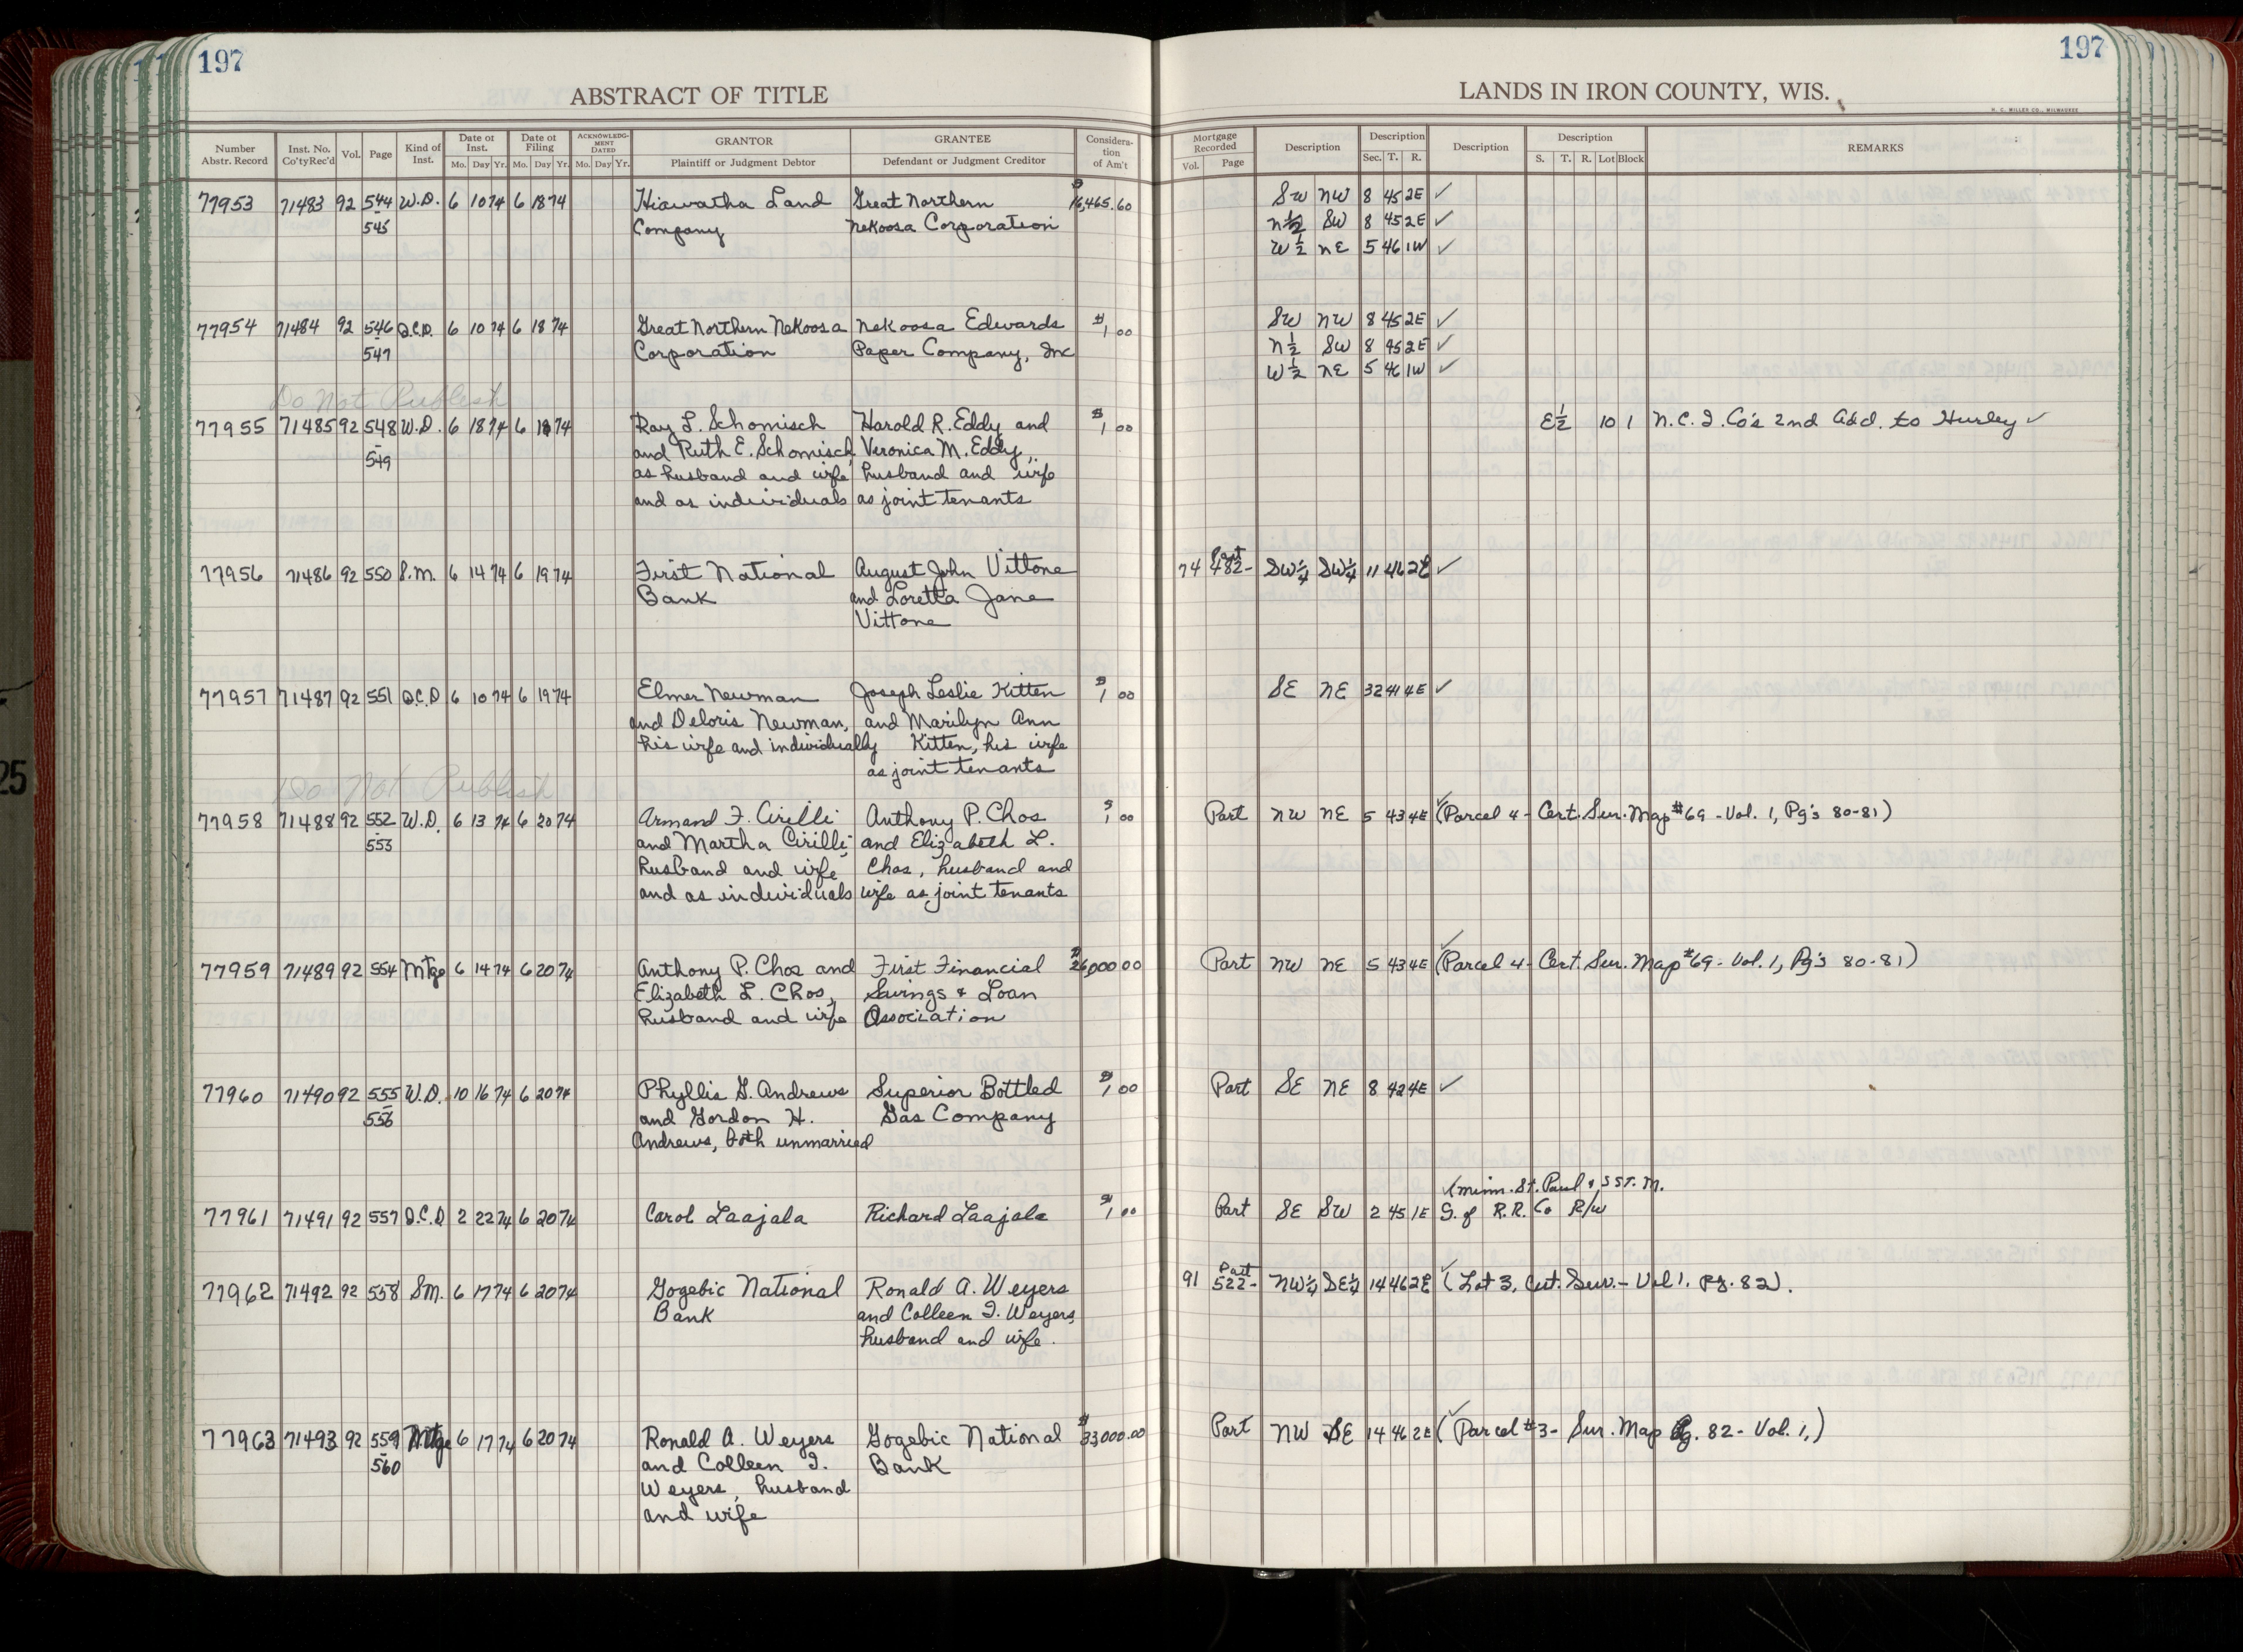 197
197
ABSTRACT OF TITLE
LANDS IN IRON COUNTY, WIS.
H. C. MILLER CO., MILWAUKEE
Number Abstr. Record | Inst. No. Co'ty Rec'd | Vol. | Page | Kind of Inst. | Date of Inst. Mo. Day Yr. | Date of Filing Mo. Day Yr. | ACKNOWLEDGMENT DATED Mo. Day Yr. | GRANTOR Plaintiff or Judgment Debtor | GRANTEE Defendant or Judgment Creditor | Consideration of Am't | Mortgage Recorded Vol. Page | Description | Description Sec. T. R. | Description | Description S. T. R. Lot Block | REMARKS
77953 71483 92 544 W.D. 6 10 74 6 18 74 Hiawatha Land Great Northern $16,465.60 SW NW 8 45 2E ✓
545 Company Nekoosa Corporation N½ SW 8 45 2E ✓
W½ NE 5 46 1W ✓
77954 71484 92 546 Q.C.D. 6 10 74 6 18 74 Great Northern Nekoosa Nekoosa Edwards $1.00 SW NW 8 45 2E ✓
547 Corporation Paper Company, Inc N½ SW 8 45 2E ✓
W½ NE 5 46 1W ✓
Do Not Publish
77955 71485 92 548 W.D. 6 18 74 6 18 74 Ray L. Schomisch Harold R. Eddy and $1.00 E½ 10 1 N.C.I. Co's 2nd Add. to Hurley ✓
549 and Ruth E. Schomisch, Veronica M. Eddy,
as husband and wife husband and wife
and as individuals as joint tenants
77956 71486 92 550 S.M. 6 14 74 6 19 74 First National August John Vittone 74 482- Part SW¼ SW¼ 11 46 2E ✓
Bank and Loretta Jane
Vittone
77957 71487 92 551 Q.C.D 6 10 74 6 19 74 Elmer Newman Joseph Leslie Kitten $1.00 SE NE 32 41 4E ✓
and Deloris Newman, and Marilyn Ann
his wife and individually Kitten, his wife
as joint tenants
Do Not Publish
77958 71488 92 552 W.D. 6 13 74 6 20 74 Armand F. Cirilli Anthony P. Chos $1.00 Part NW NE 5 43 4E ✓ (Parcel 4 - Cert. Sur. Map #69 - Vol. 1, Pg's 80-81)
553 and Martha Cirilli, and Elizabeth L.
husband and wife Chos, husband and
and as individuals wife as joint tenants
77959 71489 92 554 Mtge 6 14 74 6 20 74 Anthony P. Chos and First Financial $26,000.00 Part NW NE 5 43 4E ✓ (Parcel 4 - Cert. Sur. Map #69 - Vol. 1, Pg's 80-81)
Elizabeth L. Chos, Savings & Loan
husband and wife Association
77960 71490 92 555 W.D. 10 16 74 6 20 74 Phyllis G. Andrews Superior Bottled $1.00 Part SE NE 8 42 4E ✓
556 and Gordon H. Gas Company
Andrews, both unmarried
✓ Minn. St. Paul & S ST. M.
77961 71491 92 557 Q.C.D 2 22 74 6 20 74 Carol Laajala Richard Laajala $1.00 Part SE SW 2 45 1E S. of R.R. Co R/W
77962 71492 92 558 S.M. 6 17 74 6 20 74 Gogebic National Ronald A. Weyers 91 522- Part NW¼ SE¼ 14 46 2E ✓ (Lot 3, Cert. Sur. - Vol 1. Pg. 82).
Bank and Colleen I. Weyers,
husband and wife.
77963 71493 92 559 Mtge 6 17 74 6 20 74 Ronald A. Weyers Gogebic National $33,000.00 Part NW SE 14 46 2E ✓ (Parcel #3- Sur. Map Pg. 82 - Vol. 1,)
560 and Colleen I. Bank
Weyers, husband
and wife
25